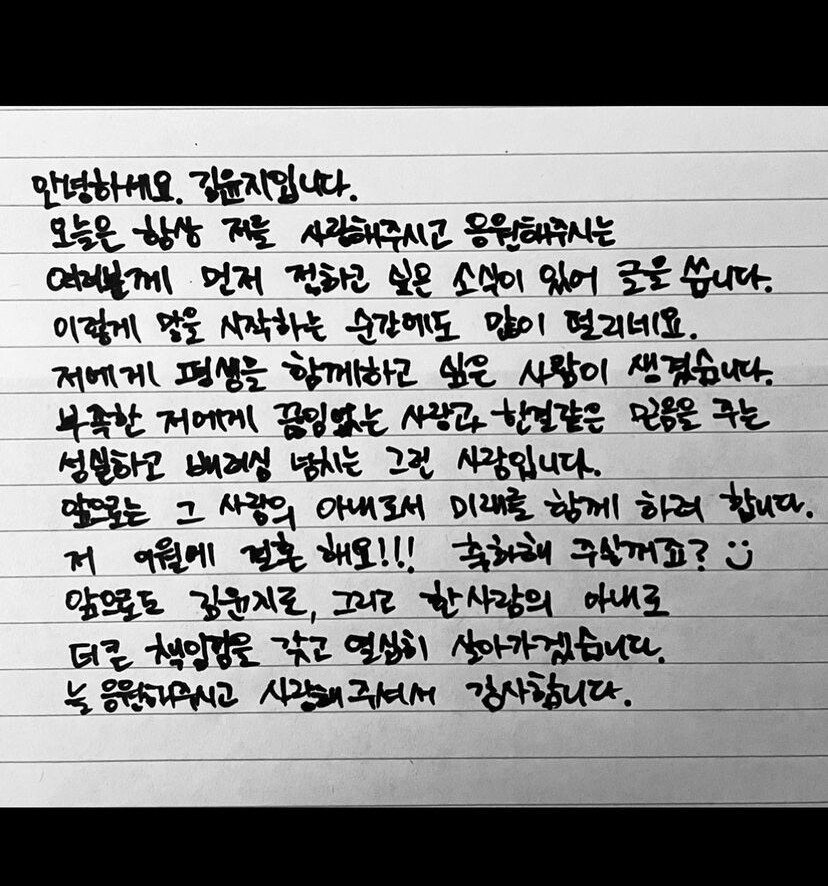 안녕하세요. 김윤지입니다.
오늘은 항상 저를 사랑해주시고 응원해주시는
여러분께 먼저 전하고 싶은 소식이 있어 글을 씁니다.
이렇게 말을 시작하는 순간에도 많이 떨리네요.
저에게 평생을 함께하고 싶은 사람이 생겼습니다.
부족한 저에게 끊임없는 사랑과, 한결같은 믿음을 주는
성실하고 배려심 넘치는 그런 사람입니다.
앞으로는 그 사람의 아내로서 미래를 함께 하려 합니다.
저 9월에 결혼 해요!!! 축하해 주실꺼죠? :)
앞으로도 김윤지로, 그리고 한사람의 아내로
더큰 책임감을 갖고 열심히 살아가겠습니다.
늘 응원해주시고 사랑해주셔서 감사합니다.